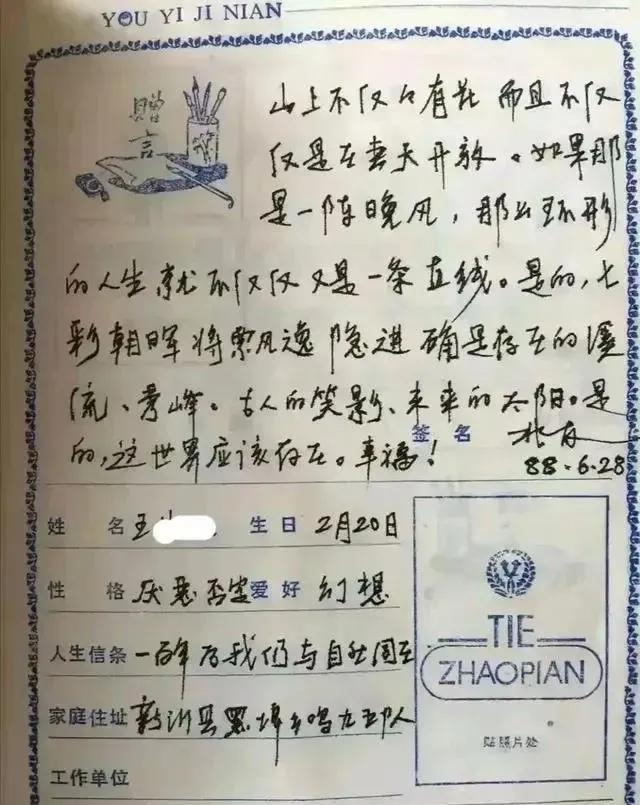 YOU YI JI NIAN
赠言
山上不仅只有花 而且不仅
仅是在春天开放。如果那
是一阵晚风，那么环形
的人生就不仅仅又是一条直线。是的，七
彩朝晖将飘逸 隐进 确是存在的溪
流、青峰。古人的笑影、未来的太阳。是
签名
的，这世界应该存在。幸福！
88.6.28
姓名 王 生日 2月20日
性格 厌恶否定 爱好 幻想
人生信条 一百年后我们与自然同在
家庭住址 新洲县
工作单位
TIE
ZHAOPIAN
贴照片处